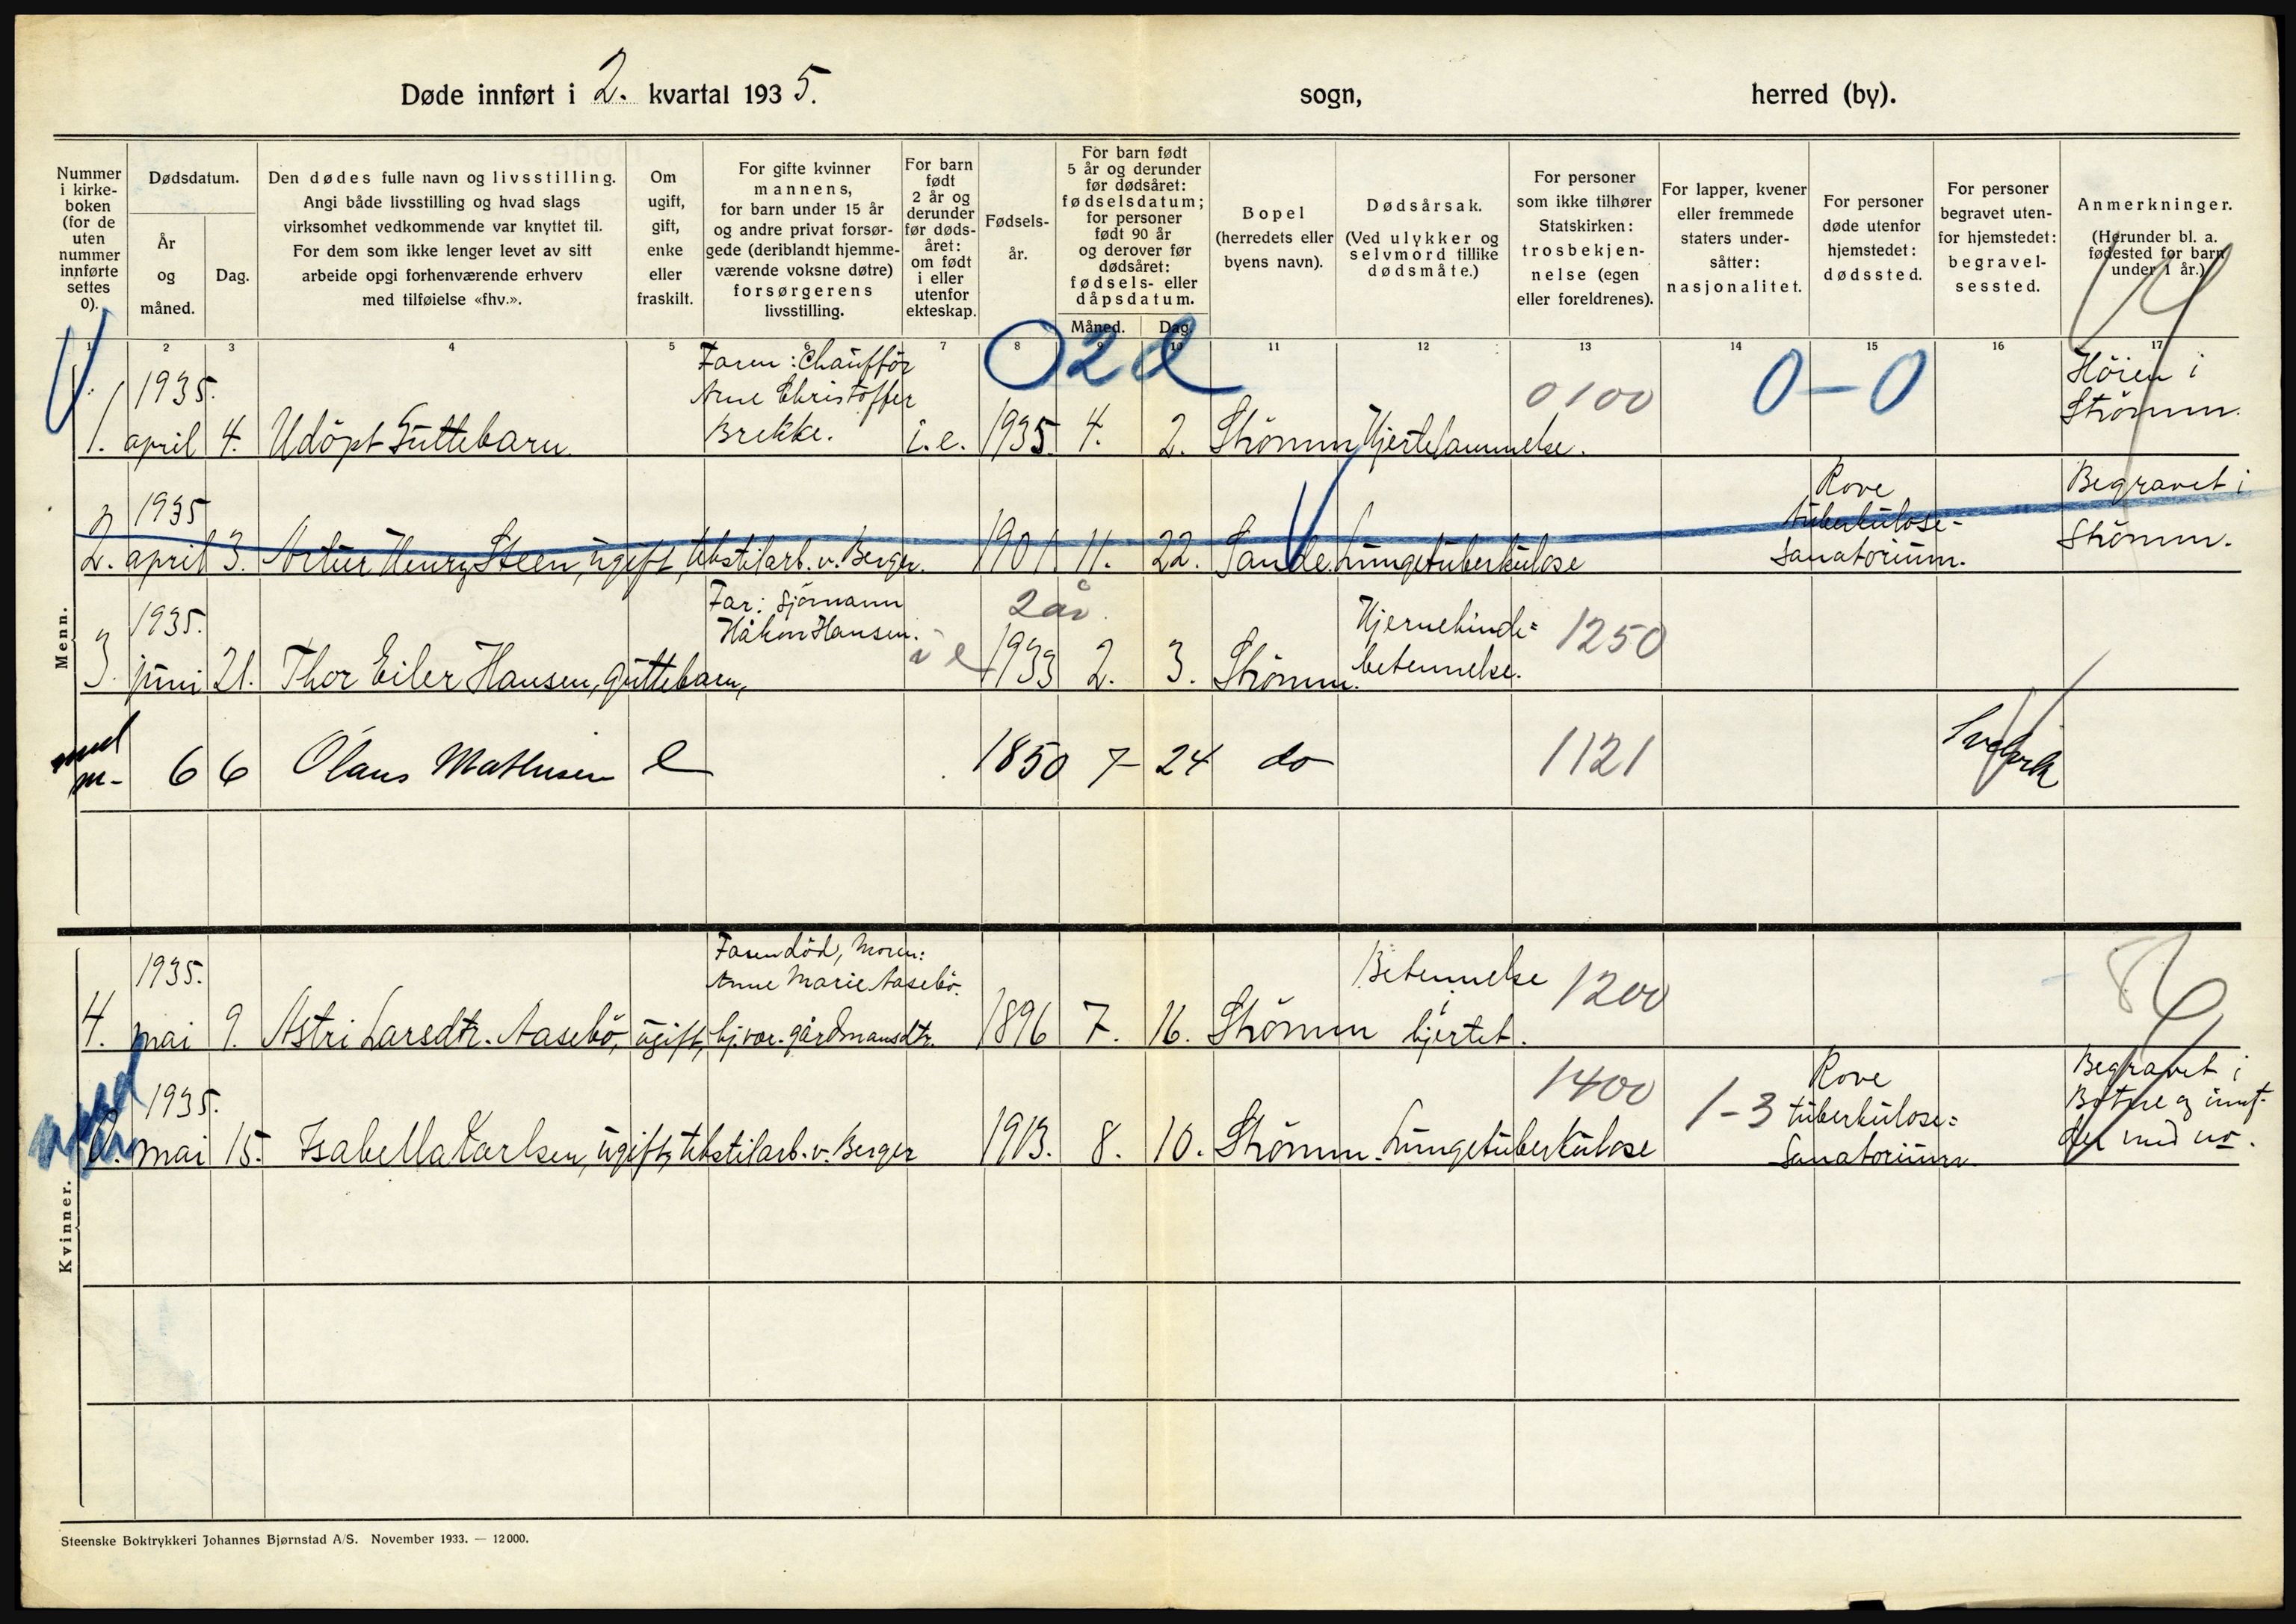 Døde innført i 2. kvartal 1935. sogn, herred (by).
Nummer i kirke-boken (for de uten nummer innførte settes 0).
Dødsdatum.
År og måned.
Dag.
Den dødes fulle navn og livsstilling.
Angi både livsstilling og hvad slags
virksomhet vedkommende var knyttet til.
For dem som ikke lenger levet av sitt
arbeide opgi forhenværende erhverv
med tilføielse «fhv.».
Om
ugift,
gift,
enke
eller
fraskilt.
For gifte kvinner
mannens,
for barn under 15 år
og andre privat forsør-
gede (deriblandt hjemme-
værende voksne døtre)
forsørgerens
livsstilling.
For barn
født
2 år og
derunder
før døds-
året:
om født
i eller
utenfor
ekteskap.
Fødsels-
år.
For barn født
5 år og derunder
før dødsåret:
fødselsdatum;
for personer
født 90 år
og derover før
dødsåret:
fødsels- eller
dåpsdatum.
Måned. Dag.
Bopel
(herredets eller
byens navn).
Dødsårsak.
(Ved ulykker og
selvmord tillike
dødsmåte.)
For personer
som ikke tilhører
Statskirken:
trosbekjen-
nelse (egen
eller foreldrenes).
For lapper, kvener
eller fremmede
staters under-
såtter:
nasjonalitet.
For personer
døde utenfor
hjemstedet:
dødssted.
For personer
begravet uten-
for hjemstedet:
begravel-
sessted.
Anmerkninger.
(Herunder bl. a.
fødested for barn
under 1 år.)
1 2 3 4 5 6 7 8 9 10 11 12 13 14 15 16 17
02d
0-0
Menn.
1935.
Faren: Chauffør
Arne Christoffer
Brekke.
0100
Höien i
Strömm.
1. april 4. Udöpt Guttebarn. i.e. 1935. 4. 2. Strömm Hjertelammelse.
1935
Rove
tuberkulose-
Sanatorium.
Begravet i
Strömm.
2. april 3. Artur Henry Steen, ugift, tekstilarb. v. Berger. 1901. 11. 22. Sande. Lungetuberkulose
1935.
Far: sjömann
Håkon Hansen.
2 år
Hjernehinde=
betennelse.
1250
3. juni 21. Thor Eiler Hansen, guttebarn, i e 1933 2. 3. Strömm.
med
m- 6 6 Olaus Mathisen e 1850 7 24 do 1121 Svelvik
Kvinner.
1935.
Faren död, Moren:
Anne Marie Aasebö.
Betennelse
i
hjertet.
1200
4. mai 9. Astri Larsdtr. Aasebö, ugift, hj.vær. gårdmansdtr. 1896 7. 16. Strömm
1935.
1400
1-3
Rove
tuberkulose=
Sanatorium
Begravet i
Botne og innf.
der med no.
0. mai 15. Isabella Karlsen, ugift, tekstilarb. v. Berger 1913. 8. 10. Strömm. Lungetuberkulose
Steenske Boktrykkeri Johannes Bjørnstad A/S. November 1933. — 12 000.